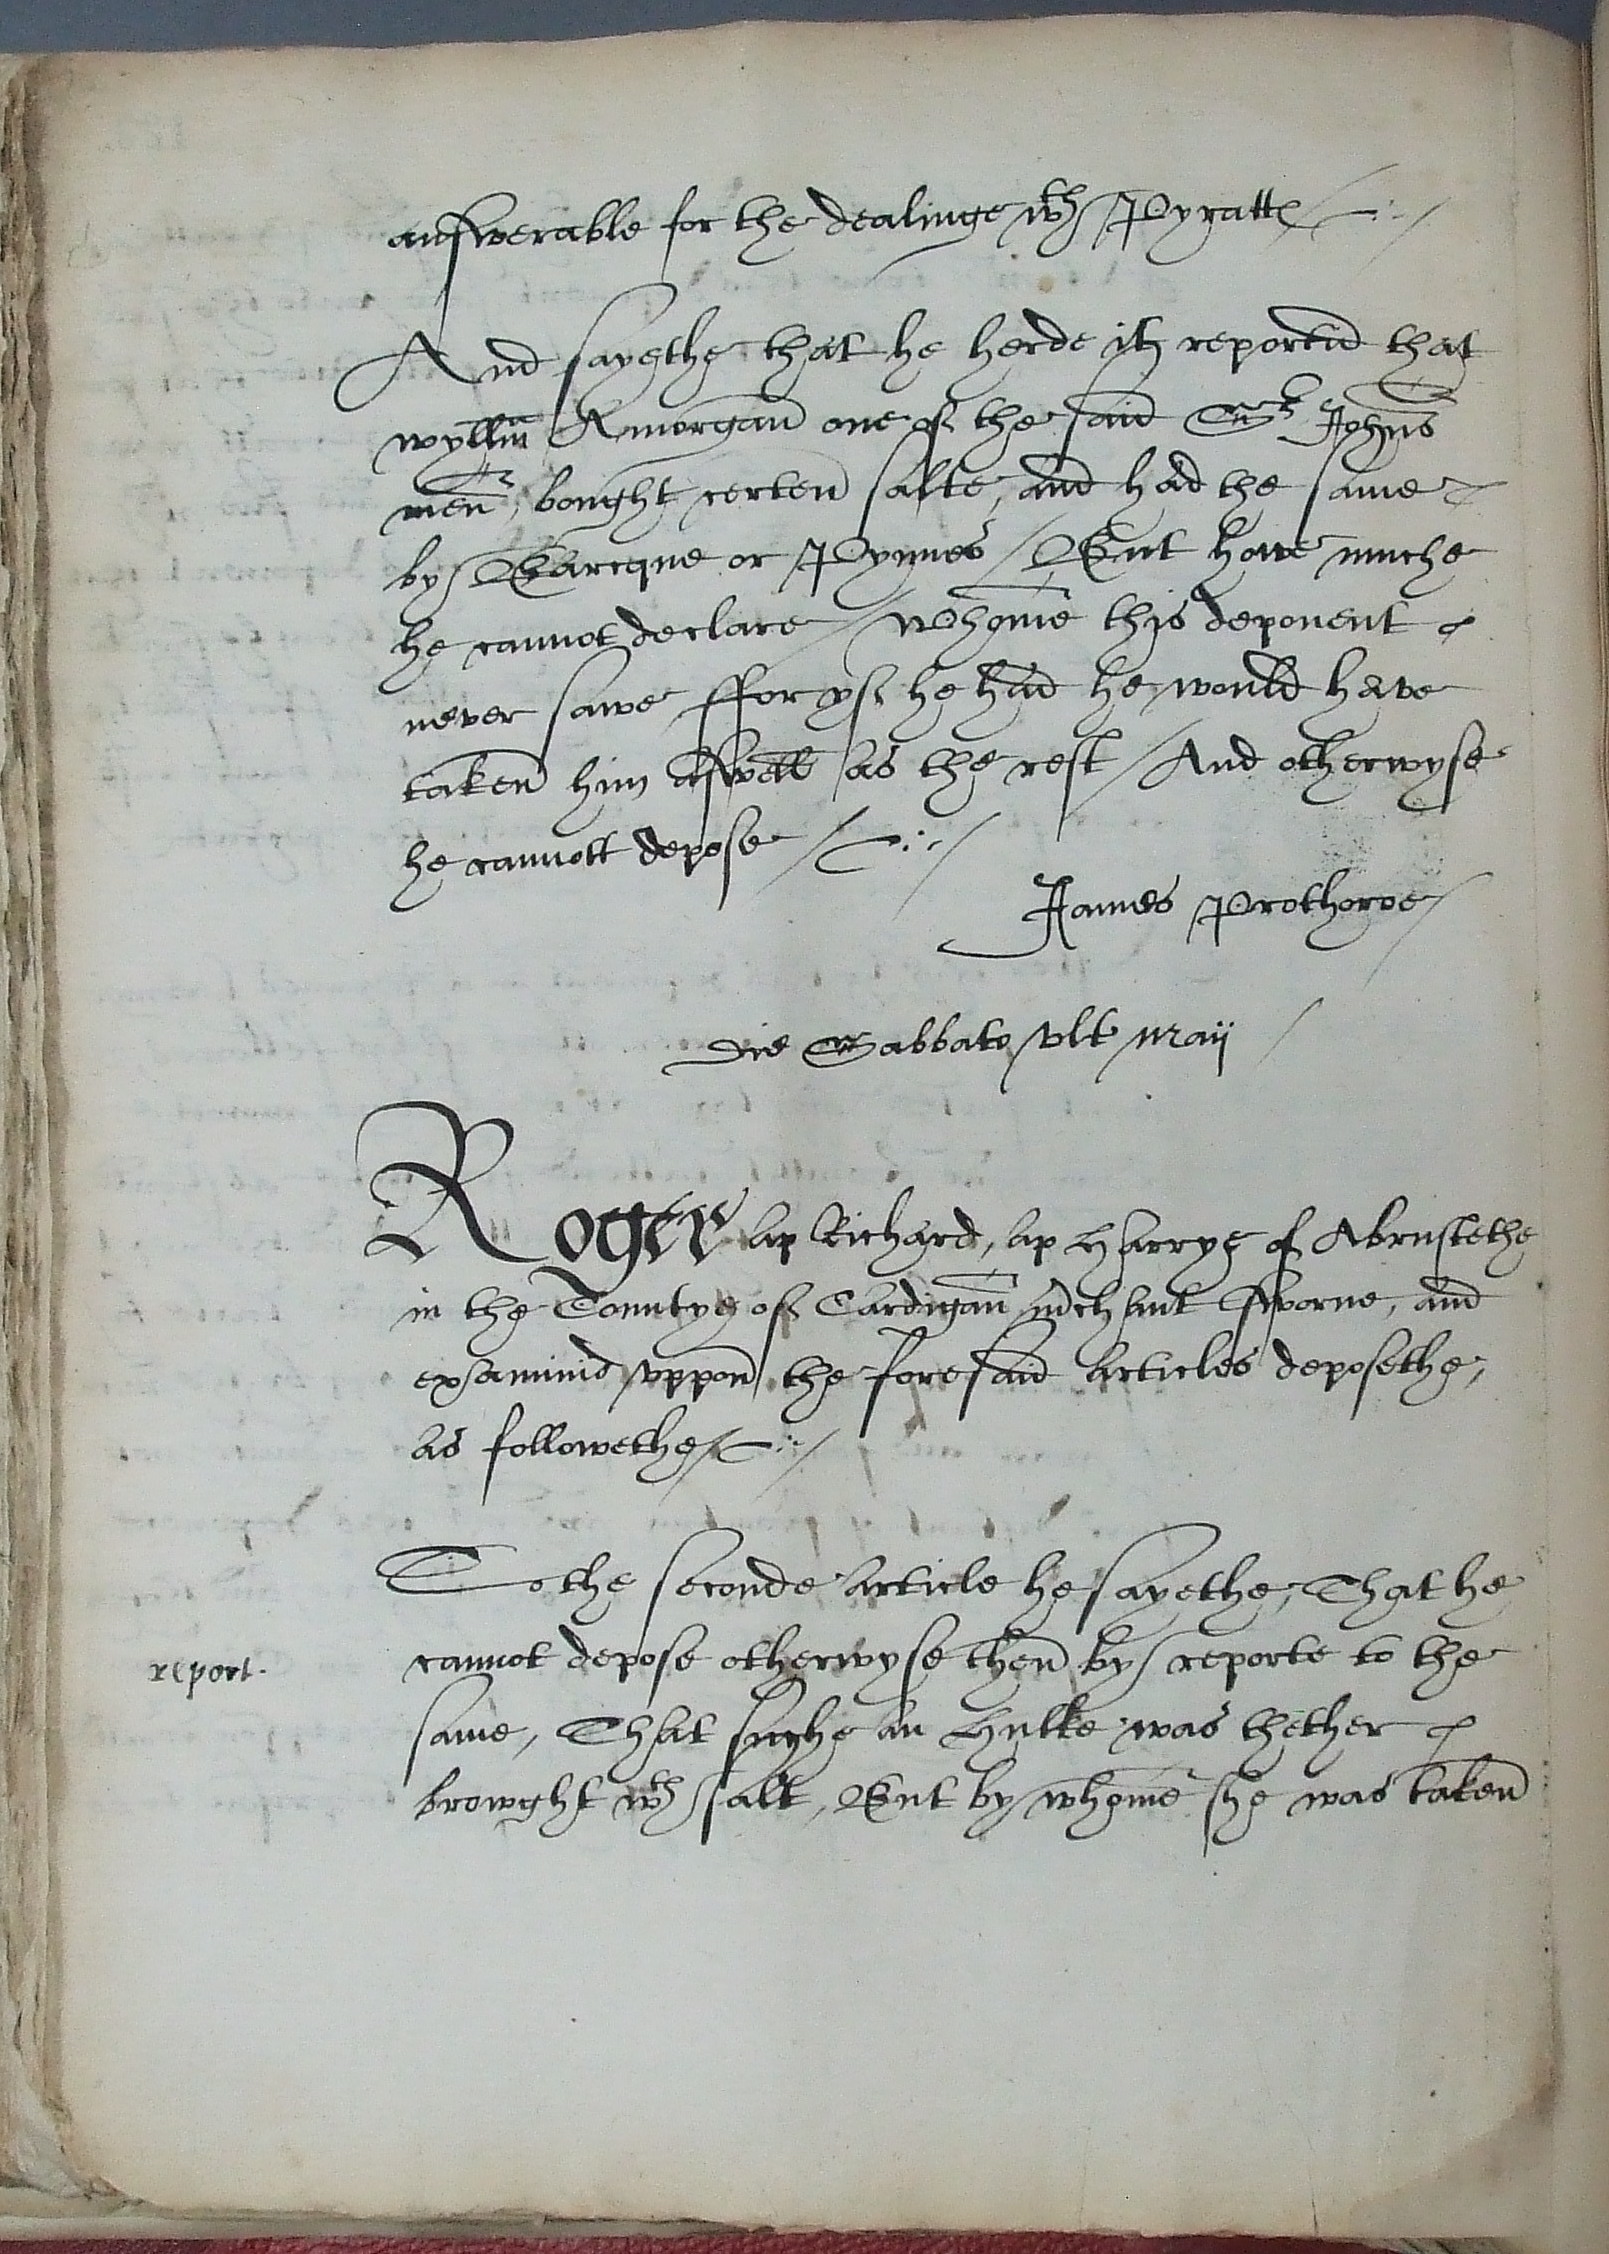 answerable for the dealinge wth Pyratts
And sayethe that he herde ytt reportid that
wyllm Amorgan one of the said Sr Johns
men, bought certen salte, and had the same
by Barcque or Pynnes / But howe muche
he cannot declare / Whome this deponent
never sawe ffor yf he had he would have
taken him aswell as the rest / And otherwyse
he cannott depose /
James Prothoroe
Die Sabbato vlt maij
Roger ap Richard, ap Harrye of Abrustethe
in the Countye of Cardigan mrchant sworne, and
examinid vppon the foresaid articles deposethe,
as followethe
To the seconde article he sayethe, That he
report.
cannot depose otherwyse then by reporte to the
same, That suche an Hulke was thether
browght wth salt, But by whome she was taken